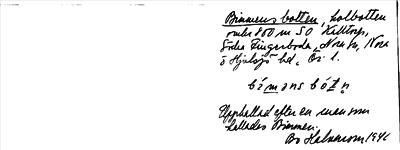 Bimmens botten, holbotten
omkr 850 m SO Killtorp,
Södra Fingerboda, Nora sn, Nora
o Hjulsjö bd, Ör. l.
bìmens bótn
Uppkallad efter en man som
kallades Bimmen.
Bo 1941